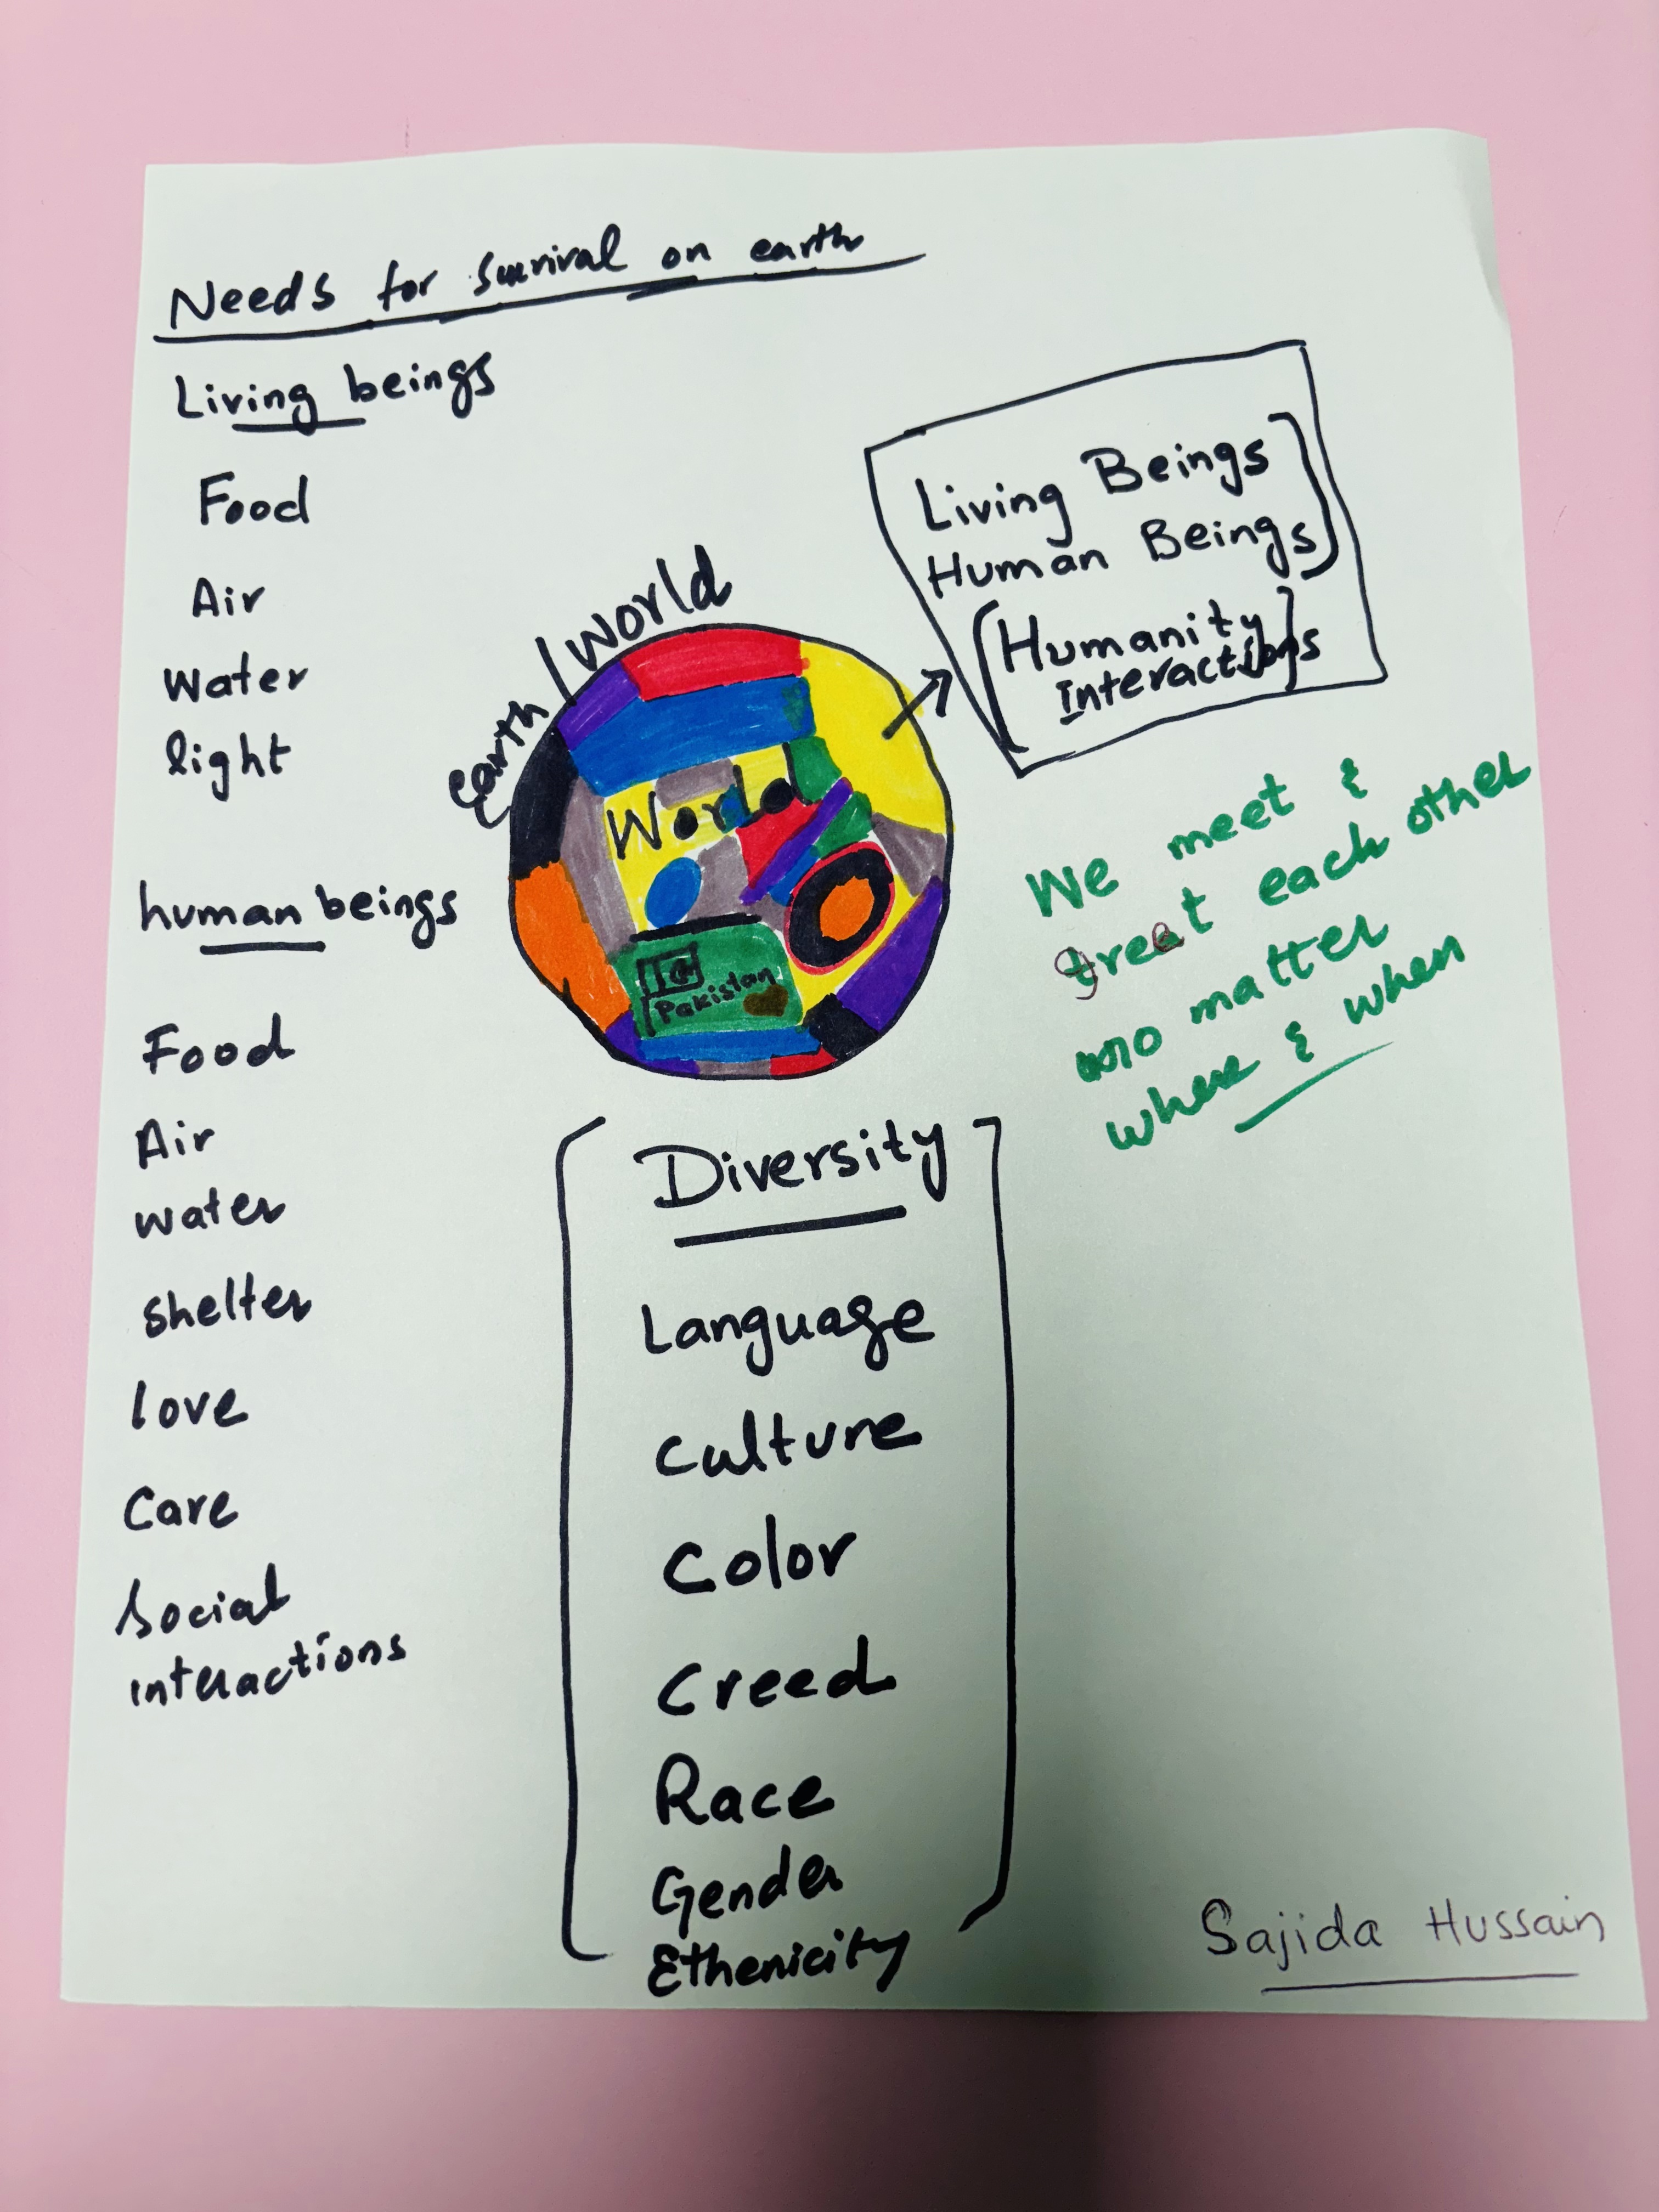 Needs for survival on earth
Living beings
Food
Air
Water
light
human beings
Food
Air
water
shelter
love
Care
Social
interactions
earth / world
World
Pakistan
Living Beings
Human Beings
Humanity
Interactions
We meet &
greet each other
no matter
where & when
Diversity
Language
Culture
Color
Creed
Race
Gender
Ethenicity
Sajida Hussain